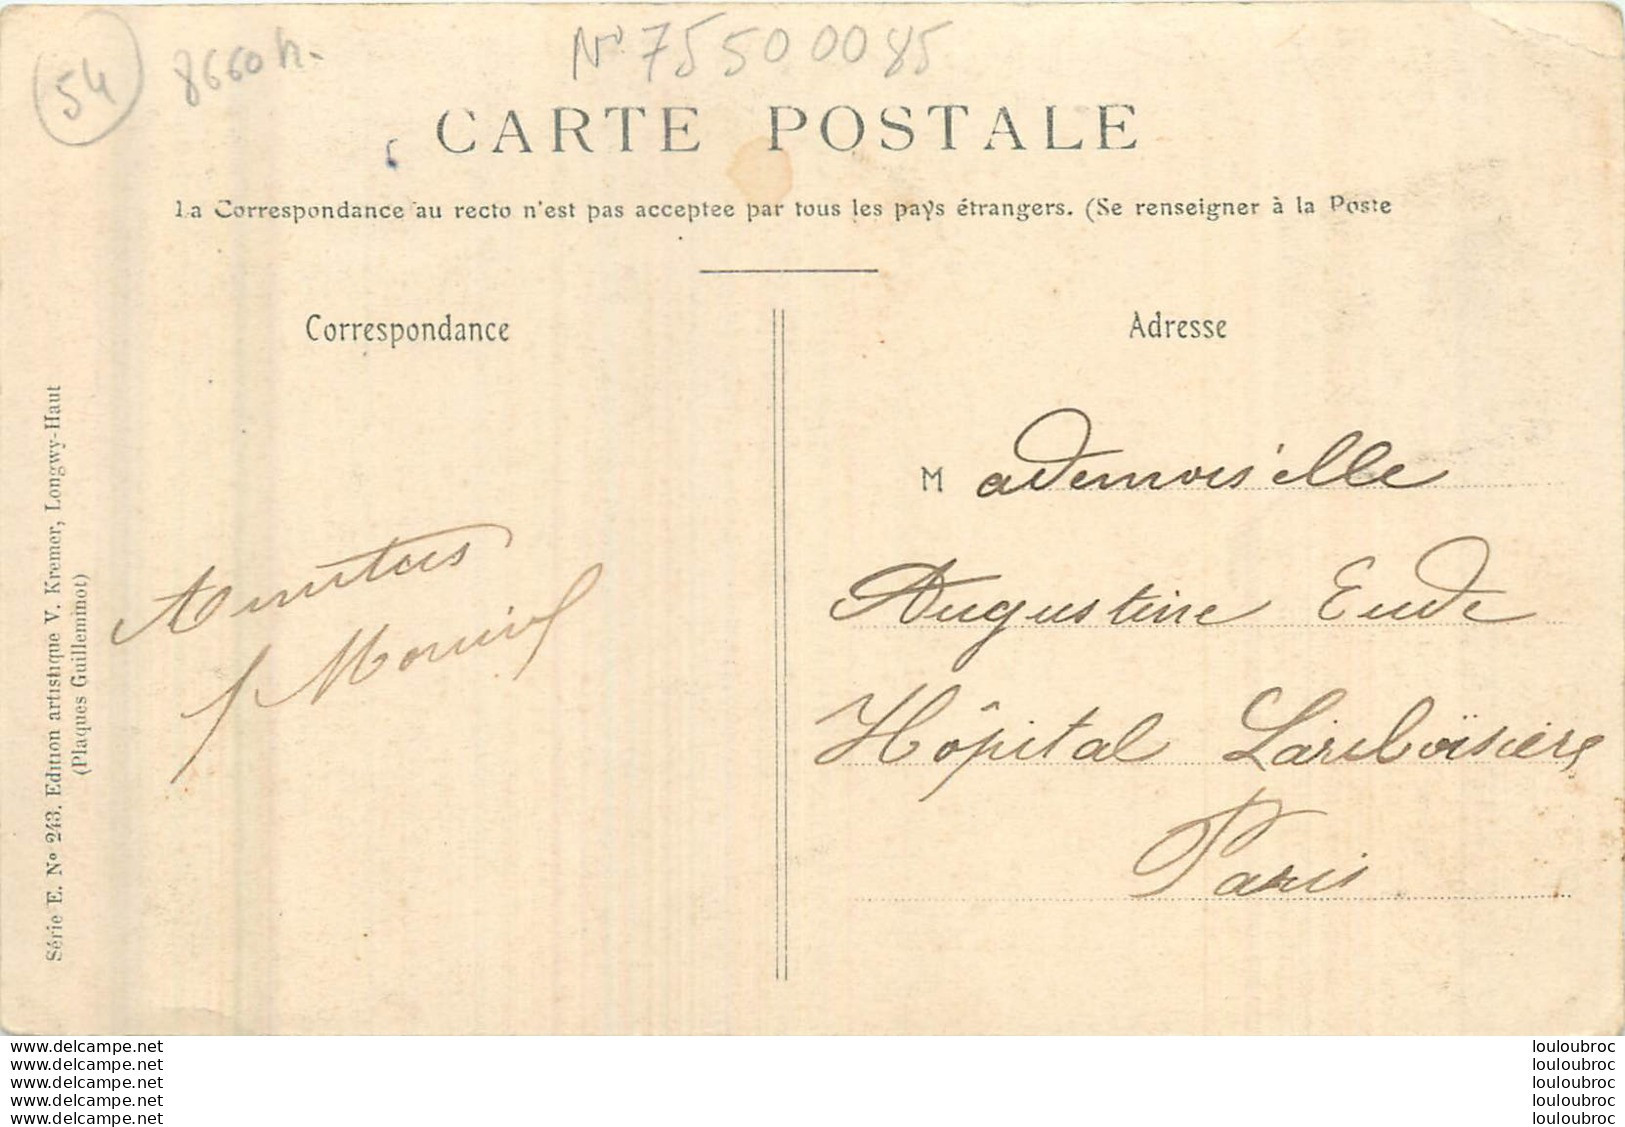 54
8660 h.
N° 75500085
CARTE POSTALE
La Correspondance au recto n'est pas acceptee par tous les pays étrangers. (Se renseigner à la Poste
Correspondance
Adresse
Série E. N° 243. Edition artistique V. Kremer, Longwy-Haut
(Plaques Guillemmot)
Amitas
Mademoiselle
Augustine Eude
Hôpital Lariboïsière
Paris
www.delcampe.net
www.delcampe.net
www.delcampe.net
www.delcampe.net
www.delcampe.net
louloubroc
louloubroc
louloubroc
louloubroc
louloubroc